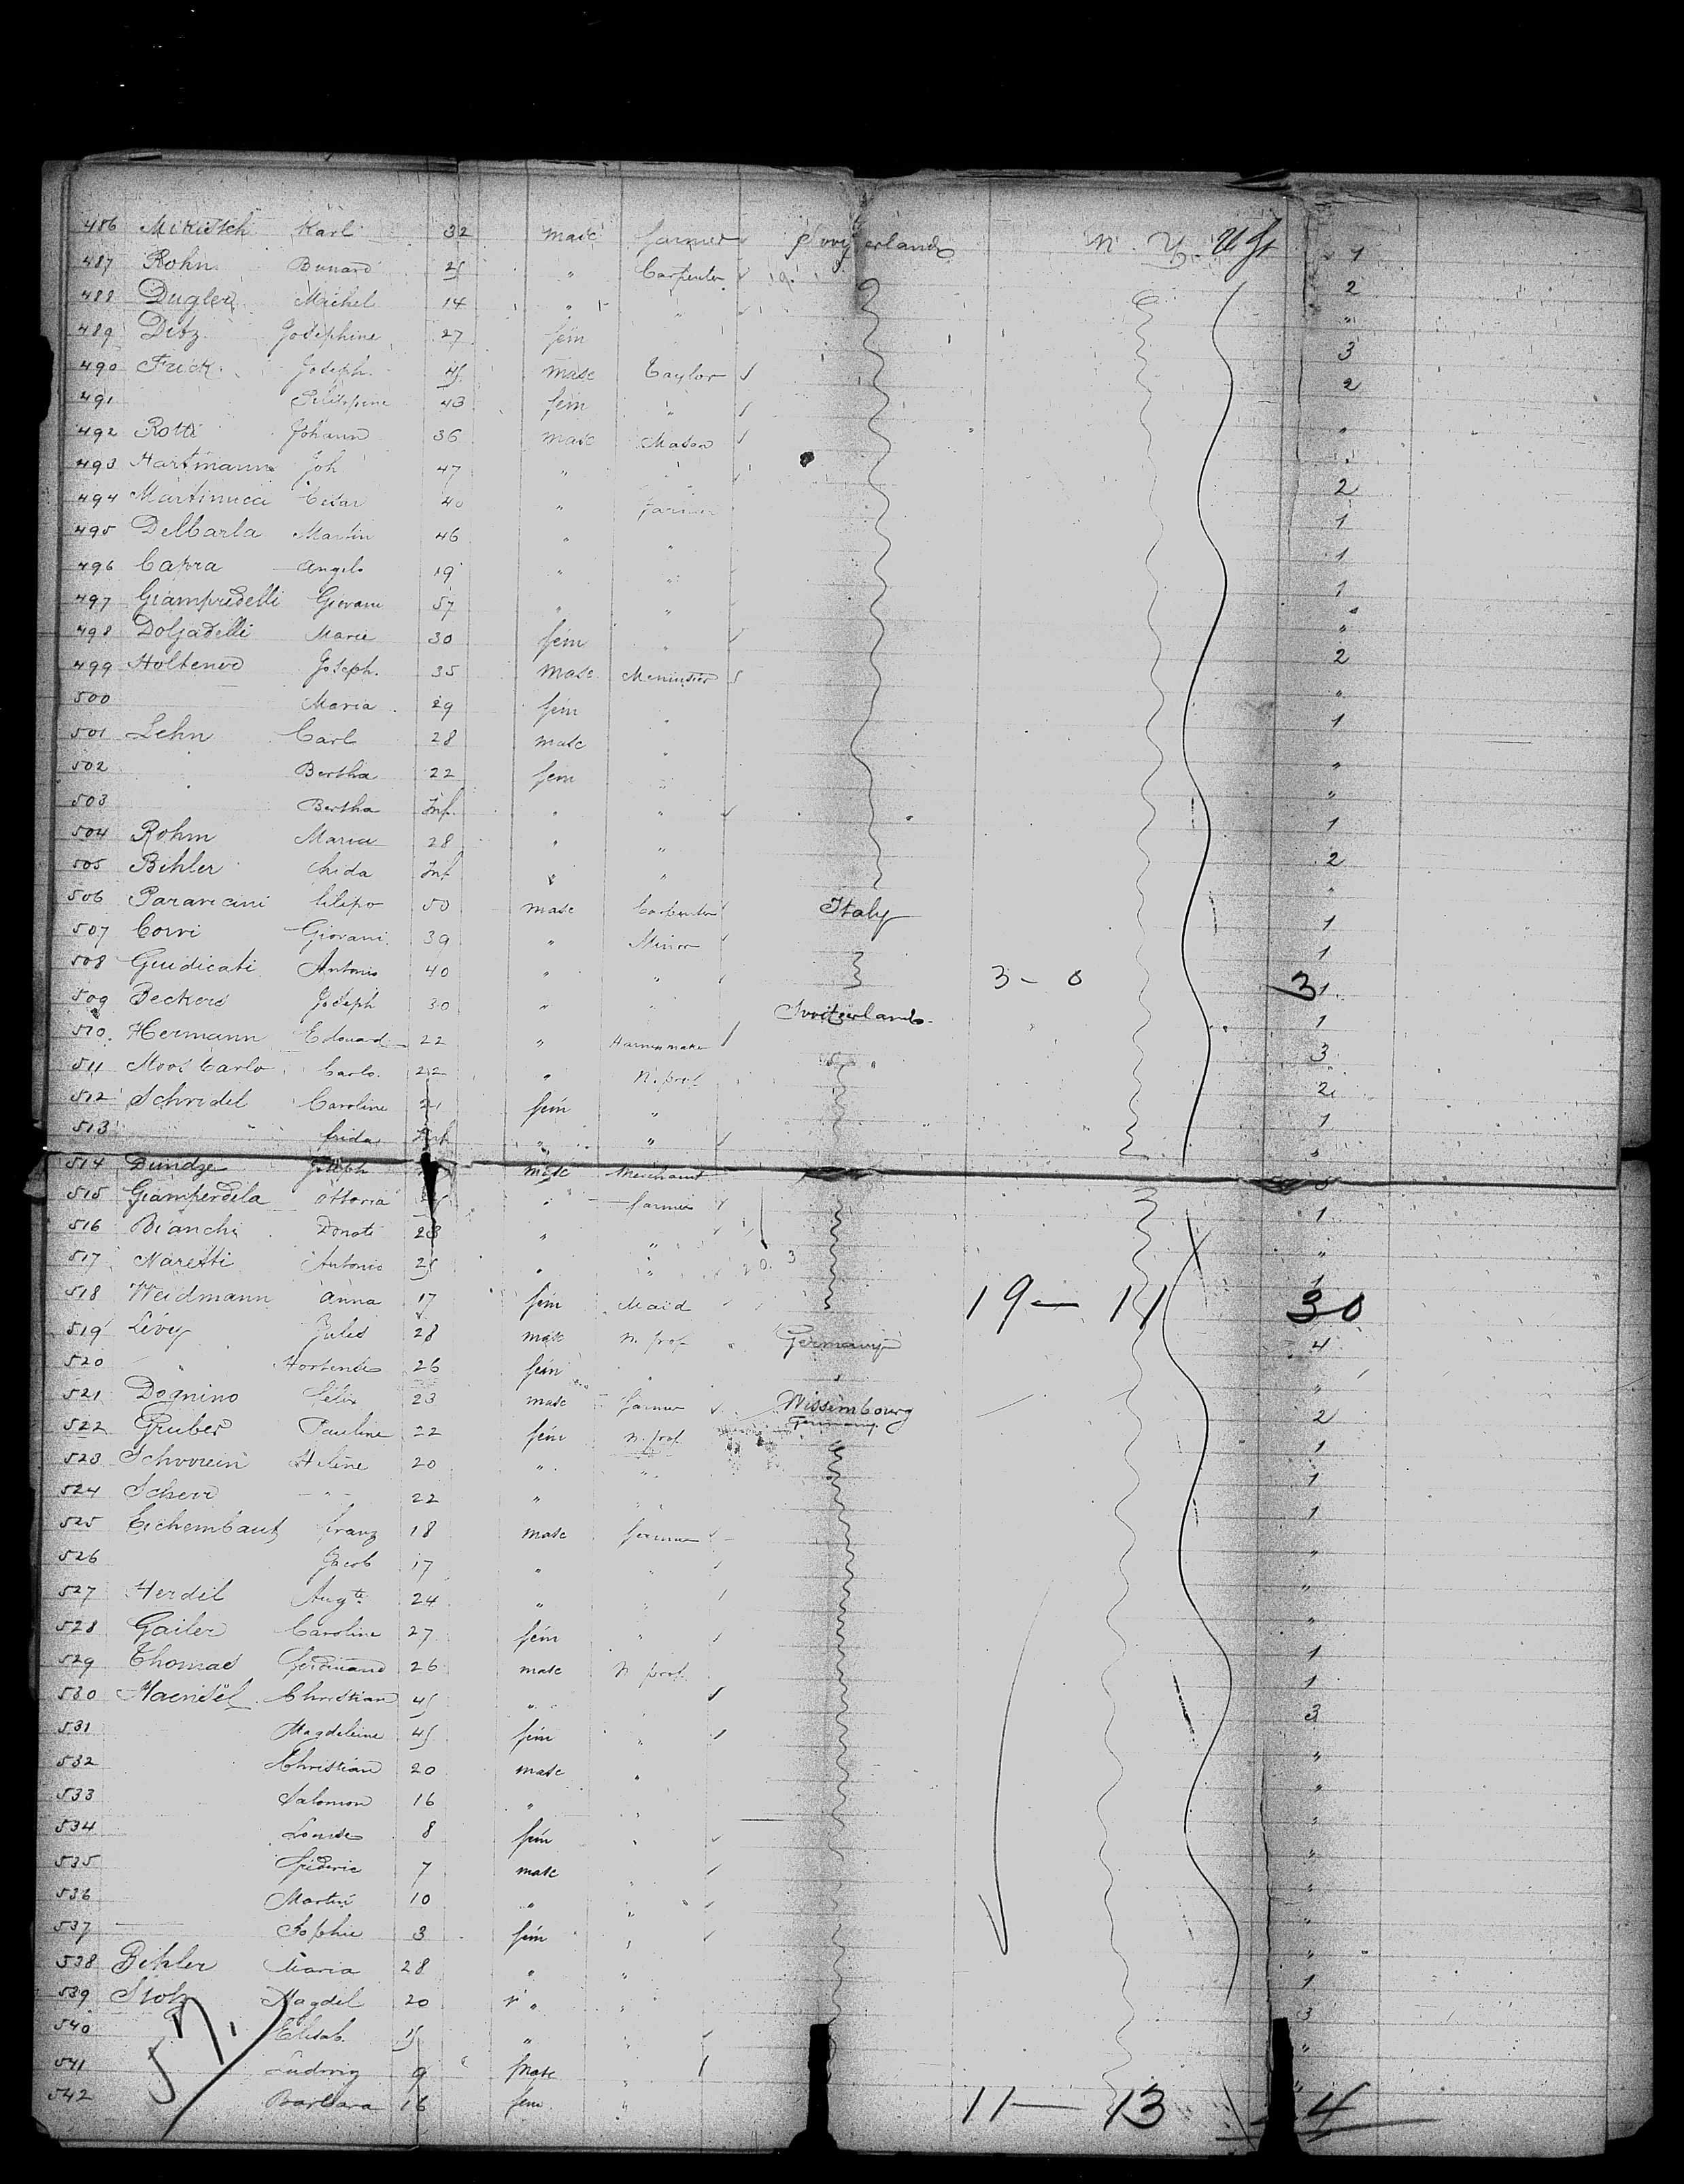 486 Mikitsch Karl 32 masc farmer Switzerland N. Y. U St 1
487 Rohn Bunard 25 " Carpenter 2
488 Dugler Michel 14 " " "
489 Ditz Josephine 27 fém 3
490 Frick Joseph 45 masc Taylor 2
491 43 fém "
492 Rotti Johann 36 masc Mason "
493 Hartmann Joh 47 " 2
494 Martinucci Cesar 40 " farmer 1
495 Delcarla Martin 46 " " 1
496 Capra Angelo 19 " " 1
497 Giampredelli Giovani 57 " " "
498 Marie 30 fém "
499 Joseph. 35 masc 2
500 Maria 29 fém " "
501 Lehn Carl 28 masc " 1
502 Bertha 22 fém " "
503 Bertha Inf. " " "
504 Rohm Maria 28 " " 1
505 Bihler Inf " " 2
506 Paravicini 50 masc Carpenter Italy "
507 Corvi Giovani 39 " Minor 1
508 Guidicati Antonio 40 " " 3 - 0 3 1
509 Beckers Joseph 30 " " Switzerland 1
510 Hermann Edouard 22 " Harnesmaker 3
511 Moos Carlo Carlo 22 " N. prof 2
512 Schridel Caroline 21 fém " 1
513 " frida Inf " " "
514 Dundze Joseph masc Merchant
515 Giamperdela Ottoria " farmer 1
516 Bianchi Donati 28 " " "
517 Naretti Antonio 25 " " 1
518 Weidmann Anna 17 fém Maid 19 — 11 30
519 Lévy Jules 28 masc N. prof Germany 4
520 " Hortense 26 fém " "
521 Dognino Félix 23 masc farmer Wissembourg 2
522 Gruber Pauline 22 fém N. prof Germany 1
523 Schwein Helène 20 " " 1
524 Scherr " 22 " " 1
525 Eichembaut franz 18 masc farmer "
526 Jacob 17 " " "
527 Herdel Augte 24 " " "
528 Gailer Caroline 27 fém " 1
529 Thomas Ferdinand 26 masc N prof. 1
530 Haensel Christian 45 " " 3
531 Magdeleine 45 fém " "
532 Christian 20 masc " "
533 Salomon 16 " " "
534 Louise 8 fém " "
535 fréderic 7 masc " "
536 Martin 10 " " "
537 Sophie 3 fém " "
538 Bihler Maria 28 " " 1
539 Stotz Magdel 20 " " 3
540 Elisab. 15 " " "
541 Ludwig 9 masc " "
542 Barbara 16 fém " 11 — 13 24